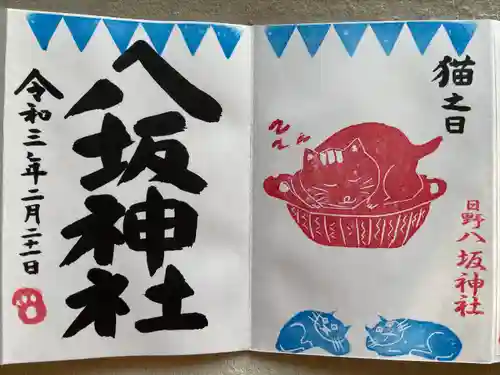 八坂神社
令和三年二月二十一日
猫之日
zzz
日野八坂神社